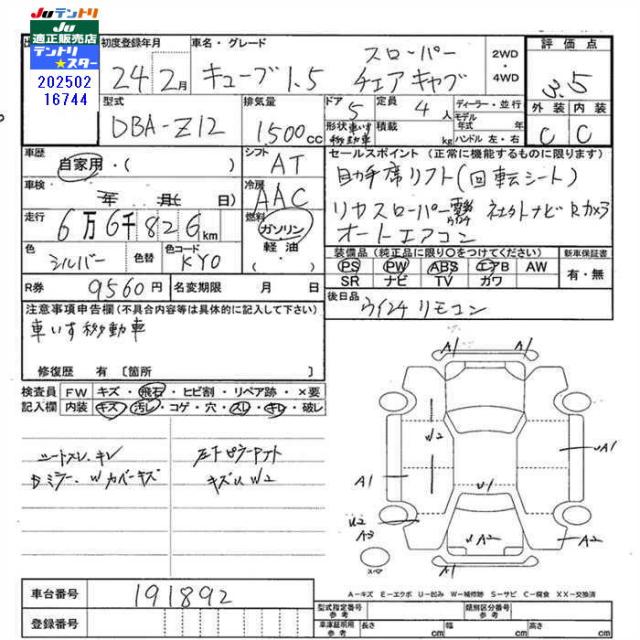 JUテントリ
JU
適正販売店
テントリ
スター
202502
16744
初度登録年月 車名・グレード 2WD・4WD 評価点
24年2月 キューブ1.5 スローパー チェアキャブ 3.5
外装 内装
C C
型式 排気量 ドア 定員 ディーラー・並行
DBA-Z12 1500cc 5 4人 モデル年式 年
形状 車いす移動車 積載 kg ハンドル 左・右
車歴 自家用・( ) シフト AT
セールスポイント (正常に機能するものに限ります)
助手席リフト(回転シート)
車検 年 月( 日) 冷房 AAC
リヤスローパー 電動ウィンチ 社外ナビ Rカメラ
走行 6万6千826km 燃料 ガソリン・軽油・( )
オートエアコン
色 シルバー 色替 色コード KY0
装備品 (純正品に限り○をつけてください) 新車保証書
PS PW ABS エアB AW 有・無
SR ナビ TV カワ
R券 9560円 名変期限 月 日
後日品 ウインチリモコン
注意事項申告欄(不具合内容等は具体的に記入して下さい)
車いす移動車
修復歴 有 〔箇所 〕
検査員 FW キズ・飛石・ヒビ割・リペア跡・×要
記入欄 内装 キズ・汚レ・コゲ・穴・スレ・キレ・破レ
シートスレ、キレ
ミラー、Wカバーキズ
左下ピラーアウト
キズU W2
A1 A1
A1 U2 U1 UA1
U2 A3 UA2 A2
スペア
A－キズ E－エクボ U－凹み W－補修跡 S－サビ C－腐食 XX－交換済
車台番号 191892
登録番号
型式指定番号 参考 類別区分番号 参考
車庫証明用 参考 長さ cm 幅 cm 高さ cm